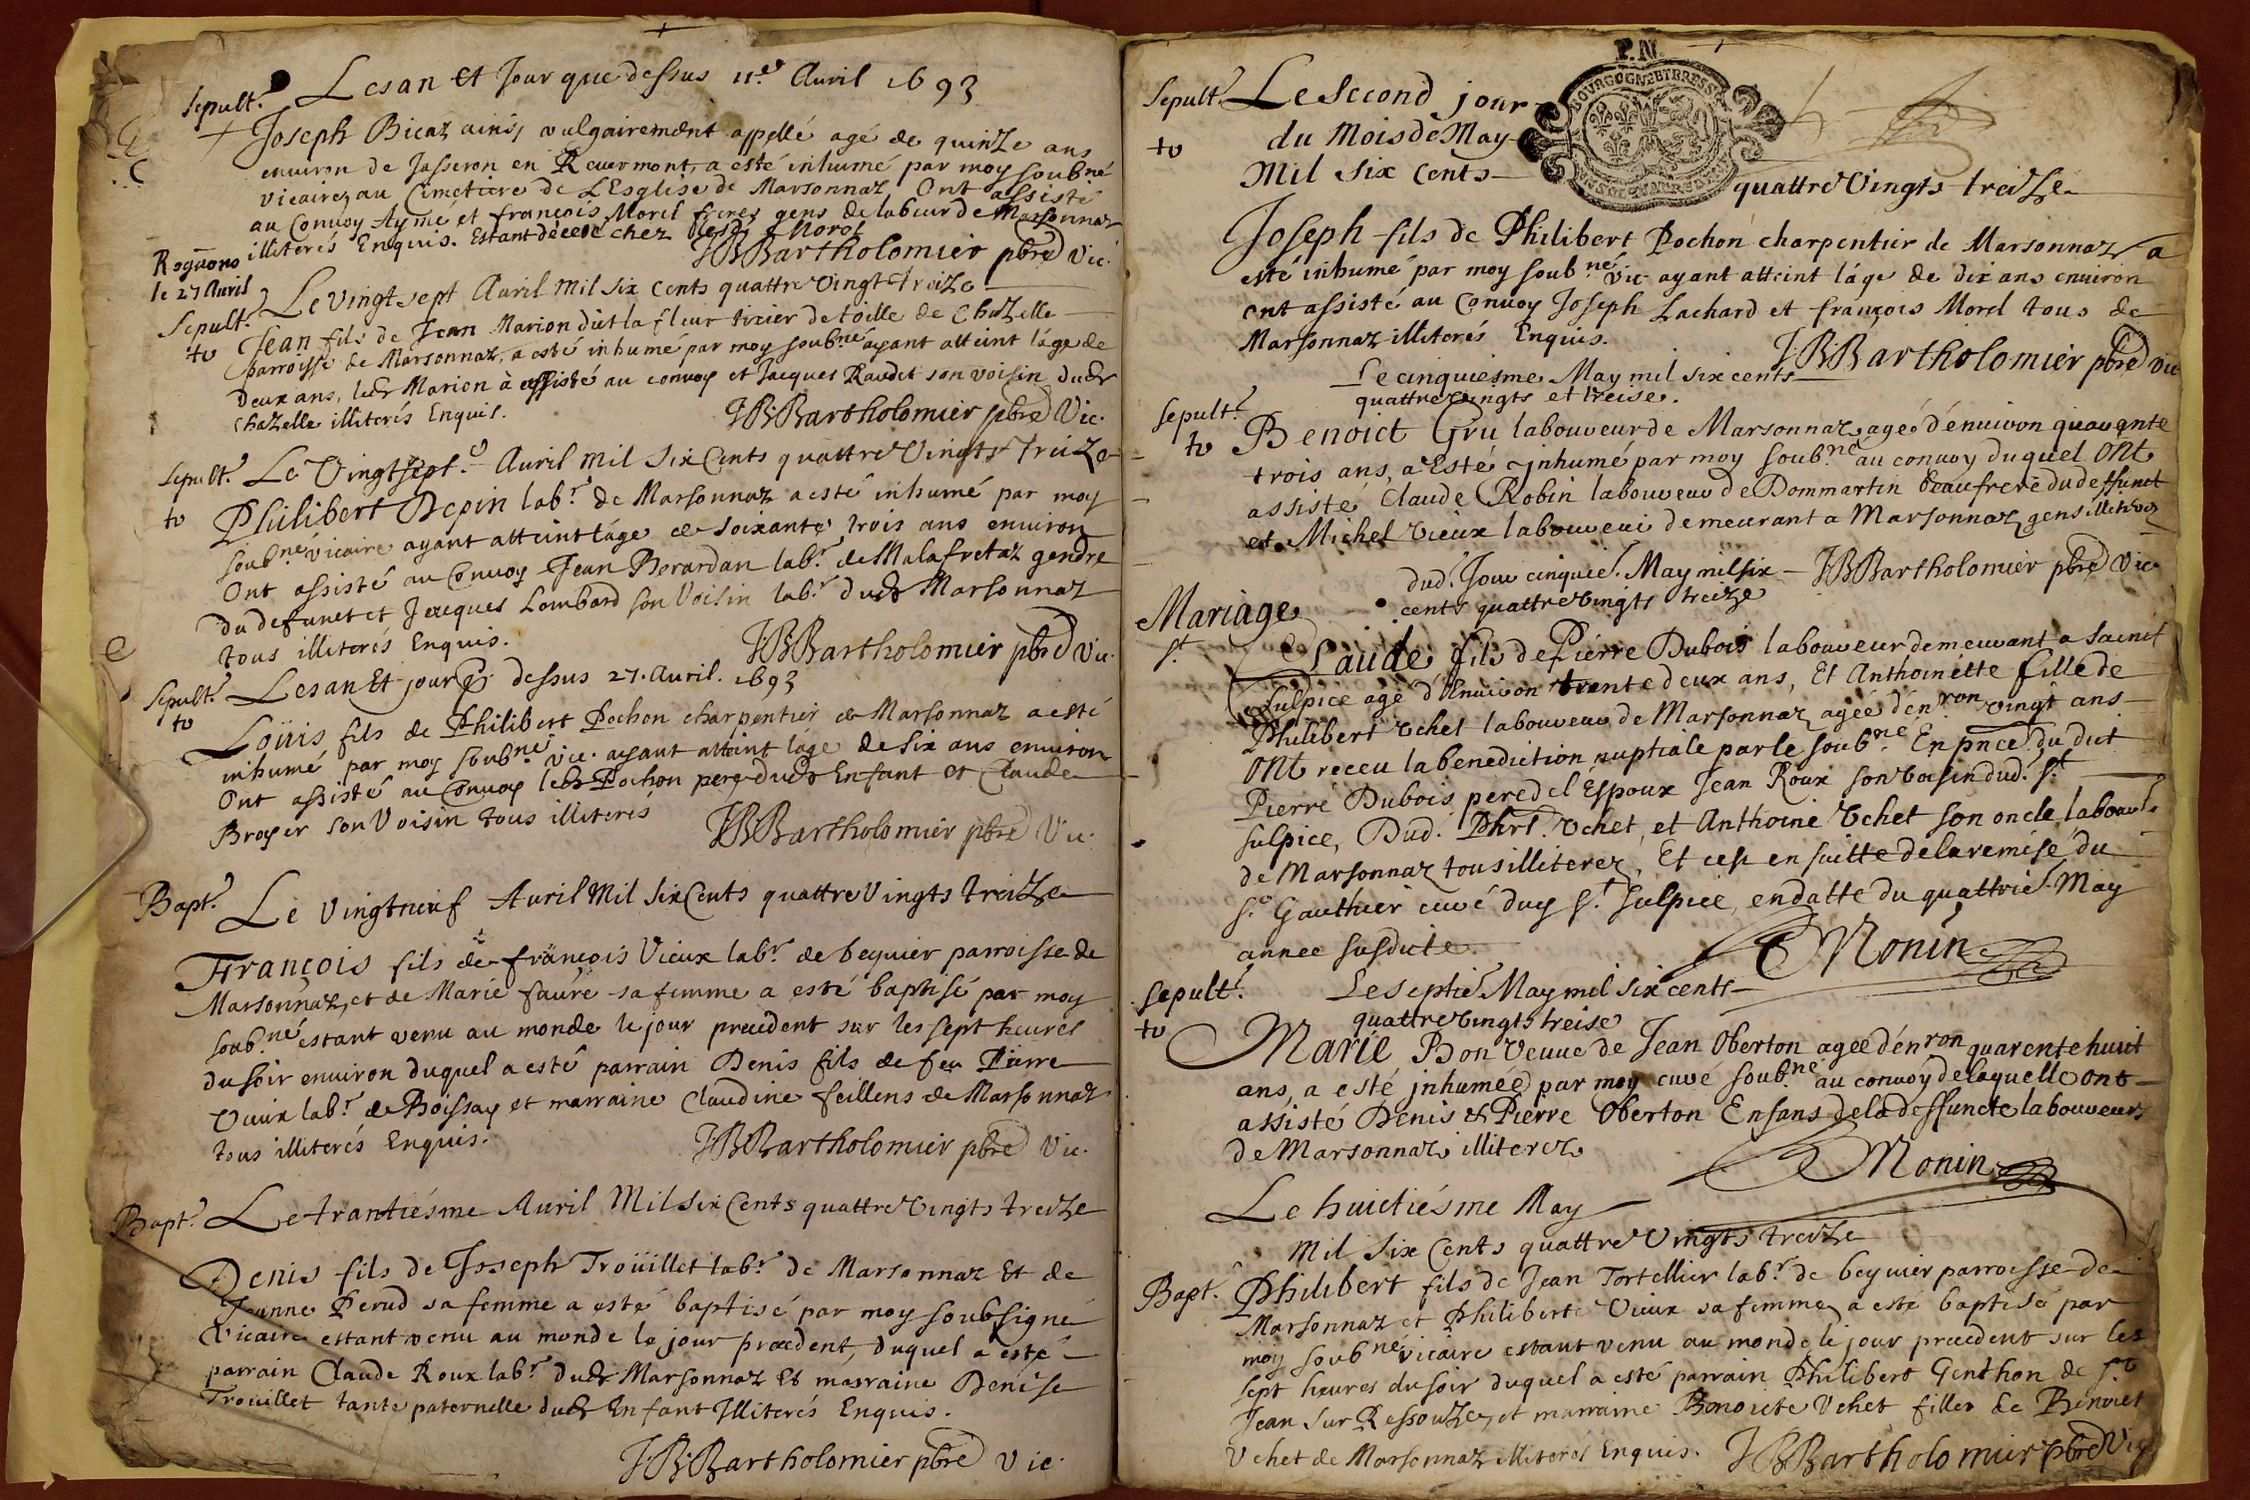 Sepult.
Lesan Et Jour que dessus 11e Auril 1693
Joseph Bicaz ainsy vulgairement appellé agé de quinze ans
enuiron de Jasseron en Reuermont, a esté inhumé par moy soubné
vicaire, au Cimetiere de L'Esglise de Marsonnaz, Ont assisté
au Convoy Aymé et françois Morel freres gens de labeur de Marsonnaz
illiterés Enquis. Estant decedé chez
JBBartholomier pbre Vic.
le 27 Auril
Sepult.
to
Le vingt sept Auril mil six cents quattre vingt treize
Jean fils de Jean Marion dict la fleur tixier de toille de Chazelle
parroisse de Marsonnaz, a esté inhumé par moy soubné ayant atteint láge de
deux ans, led Marion à assisté au convoy et Jacques Raudet son voisin dud
Chazelle illiterés Enquis.
JBBartholomier pbre Vic.
Sepult.
to
Le Vingtsept. Auril mil six Cents quattre Vingts treize
Philibert Depin labr de Marsonnaz a esté inhumé par moy
soubné vicaire ayant atteint láge de soixante trois ans enuiron
Ont assisté au Convoy Jean Berardan labr de Malafretaz gendre
du defunct et Jacques Lombard son Voisin labr dud Marsonnaz
tous illiterés Enquis.
JBBartholomier pbre Vic.
Sepult.
to
Lesan Et jour q dessus 27. Auril. 1693
Loüis fils de Philibert Pochon charpentier de Marsonnaz a esté
inhumé par moy soubné vic. ayant atteint láge de six ans enuiron
Ont assisté au Convoy led Pochon pere dud Enfant et Claude
Broyer son Voisin tous illiterés
JBBartholomier pbre Vic.
Bapt.
Le vingtneuf Auril Mil Six Cents quattre Vingts treize
François fils de françois Vieux labr de bequier parroisse de
Marsonnaz, et de Marie faure sa femme a esté baptisé par moy
soubné estant venu au monde le jour precedent sur les sept heures
du soir enuiron duquel a esté parrain Denis fils de feu Pierre
Vieux labr de Boissay et marraine Claudine feillens de Marsonnaz
tous illiterés Enquis.
JBBartholomier pbre Vic.
Bapt.
Le trantiésme Auril Mil Six Cents quattre Vingts treize
Denis fils de Joseph Troüillet labr de Marsonnaz Et de
Jeanne Perud sa femme a esté baptisé par moy soubsigné
Vicaire estant venu au monde le jour precedent, duquel a esté
parrain Claude Roux labr dud Marsonnaz Et marraine Denise
Trouillet tante paternelle dud Enfant Illiterés Enquis.
JBBartholomier pbre Vic.
P.M.
BOURGOGNE ET BRESSE
Sepult.
to
Le Second jour
du Mois de May
Mil six Cents
quattre Vingts treize
Joseph fils de Philibert Pochon charpentier de Marsonnaz a
esté inhumé par moy soubné vic ayant atteint láge de dix ans enuiron
ont assisté au Convoy Joseph Lachard et françois Morel tous de
Marsonnaz illiterés Enquis.
JBBartholomier pbre Vic
Le cinquiesme May mil six cents
quattre vingts et treise.
Sepult.
to
Benoict Gru laboureur de Marsonnaz, agé d'enuiron quarante
trois ans, a Esté Jnhumé par moy soubné au convoy duquel ont
assisté Claude Robin laboureur de Dommartin beaufrere du deffunct
et Michel vieux laboureur demeurant a Marsonnaz gens illiterez
JBBartholomier pbre Vic
dud. Jour cinquie. May mil six
cents quattre vingts treize
Mariage
st
Claude fils de Pierre Dubois laboureur demeurant a Sainct
Sulpice agé d'enuiron trente deux ans, Et Anthoinette fille de
Philibert Vchet laboureur de Marsonnaz agée d'enron vingt ans
ONt receu la benediction nuptiale par le soubné En pnce du dict
Pierre Dubois pere de l'Espoux Jean Roux son voisin dud. st
sulpice, Dud. Phrt. Vchet, et Anthoine Vchet son oncle labours
de Marsonnaz tous illiterez, Et ce en suitte de la remise du
sr Gauthier curé dud st Sulpice, en datte du quattrie May
annee susdicte
Monin
Le septie May mil six cents
quattre vingts treise
Sepult.
to
Marie Bon veuue de Jean Oberton agée d'enron quarente huict
ans, a esté jnhumée par moy curé soubné au convoy de laquelle ont
assisté Denis & Pierre Oberton Enfans de la deffuncte laboureurs
de Marsonnaz illiterez
Monin
Le huictiésme May
Mil Six Cents quattre Vingts treize
Bapt.
Philibert fils de Jean Tortellier labr de beyuier parroisse de
Marsonnaz et Philiberte Vieux sa femme, a esté baptisé par
moy soubné vicaire estant venu au monde le jour precedent sur les
sept heures du soir duquel a esté parrain Philibert Genthon de St
Jean sur Ressouze, et marraine Benoicte Vchet fille de Benoict
Vchet de Marsonnaz illiterés Enquis.
JBBartholomier pbre Vic